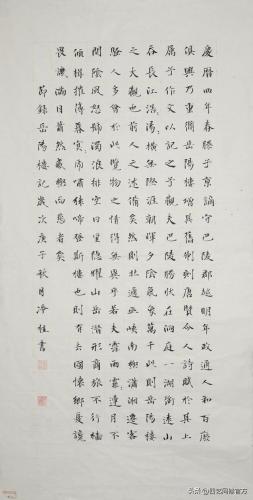 慶曆四年春滕子京謫守巴陵郡越明年政通人和百廢
俱興乃重修岳陽樓增其舊制刻唐賢今人詩賦於其上
屬予作文以記之予觀夫巴陵勝狀在洞庭一湖銜遠山
吞長江浩〻湯〻橫無際涯朝暉夕陰氣象萬千此則岳陽樓
之大觀也前人之述備矣然則北通巫峽南極瀟湘遷客
騷人多會於此覽物之情得無異乎若夫霪雨霏〻連月不
開陰風怒號濁浪排空日星隱曜山岳潛形商旅不行檣
傾楫摧薄暮冥〻虎嘯猿啼登斯樓也則有去國懷鄉憂讒
畏譏滿目蕭然感極而悲者矣
節錄岳陽樓記歲次庚子秋月 書
头条